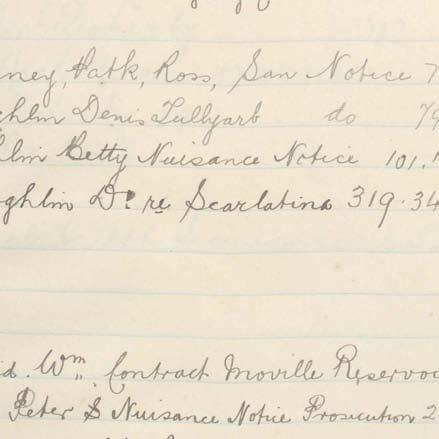 ney, Patk, Ross, San Notice 7
chlin Denis Tullyarb do 79
hlin Betty Nuisance Notice 101.1
oghlin Dr. re Scarlatina 319.34
id. Wm. Contract Moville Reservo
Peter S Nuisance Notice Prosecution 2